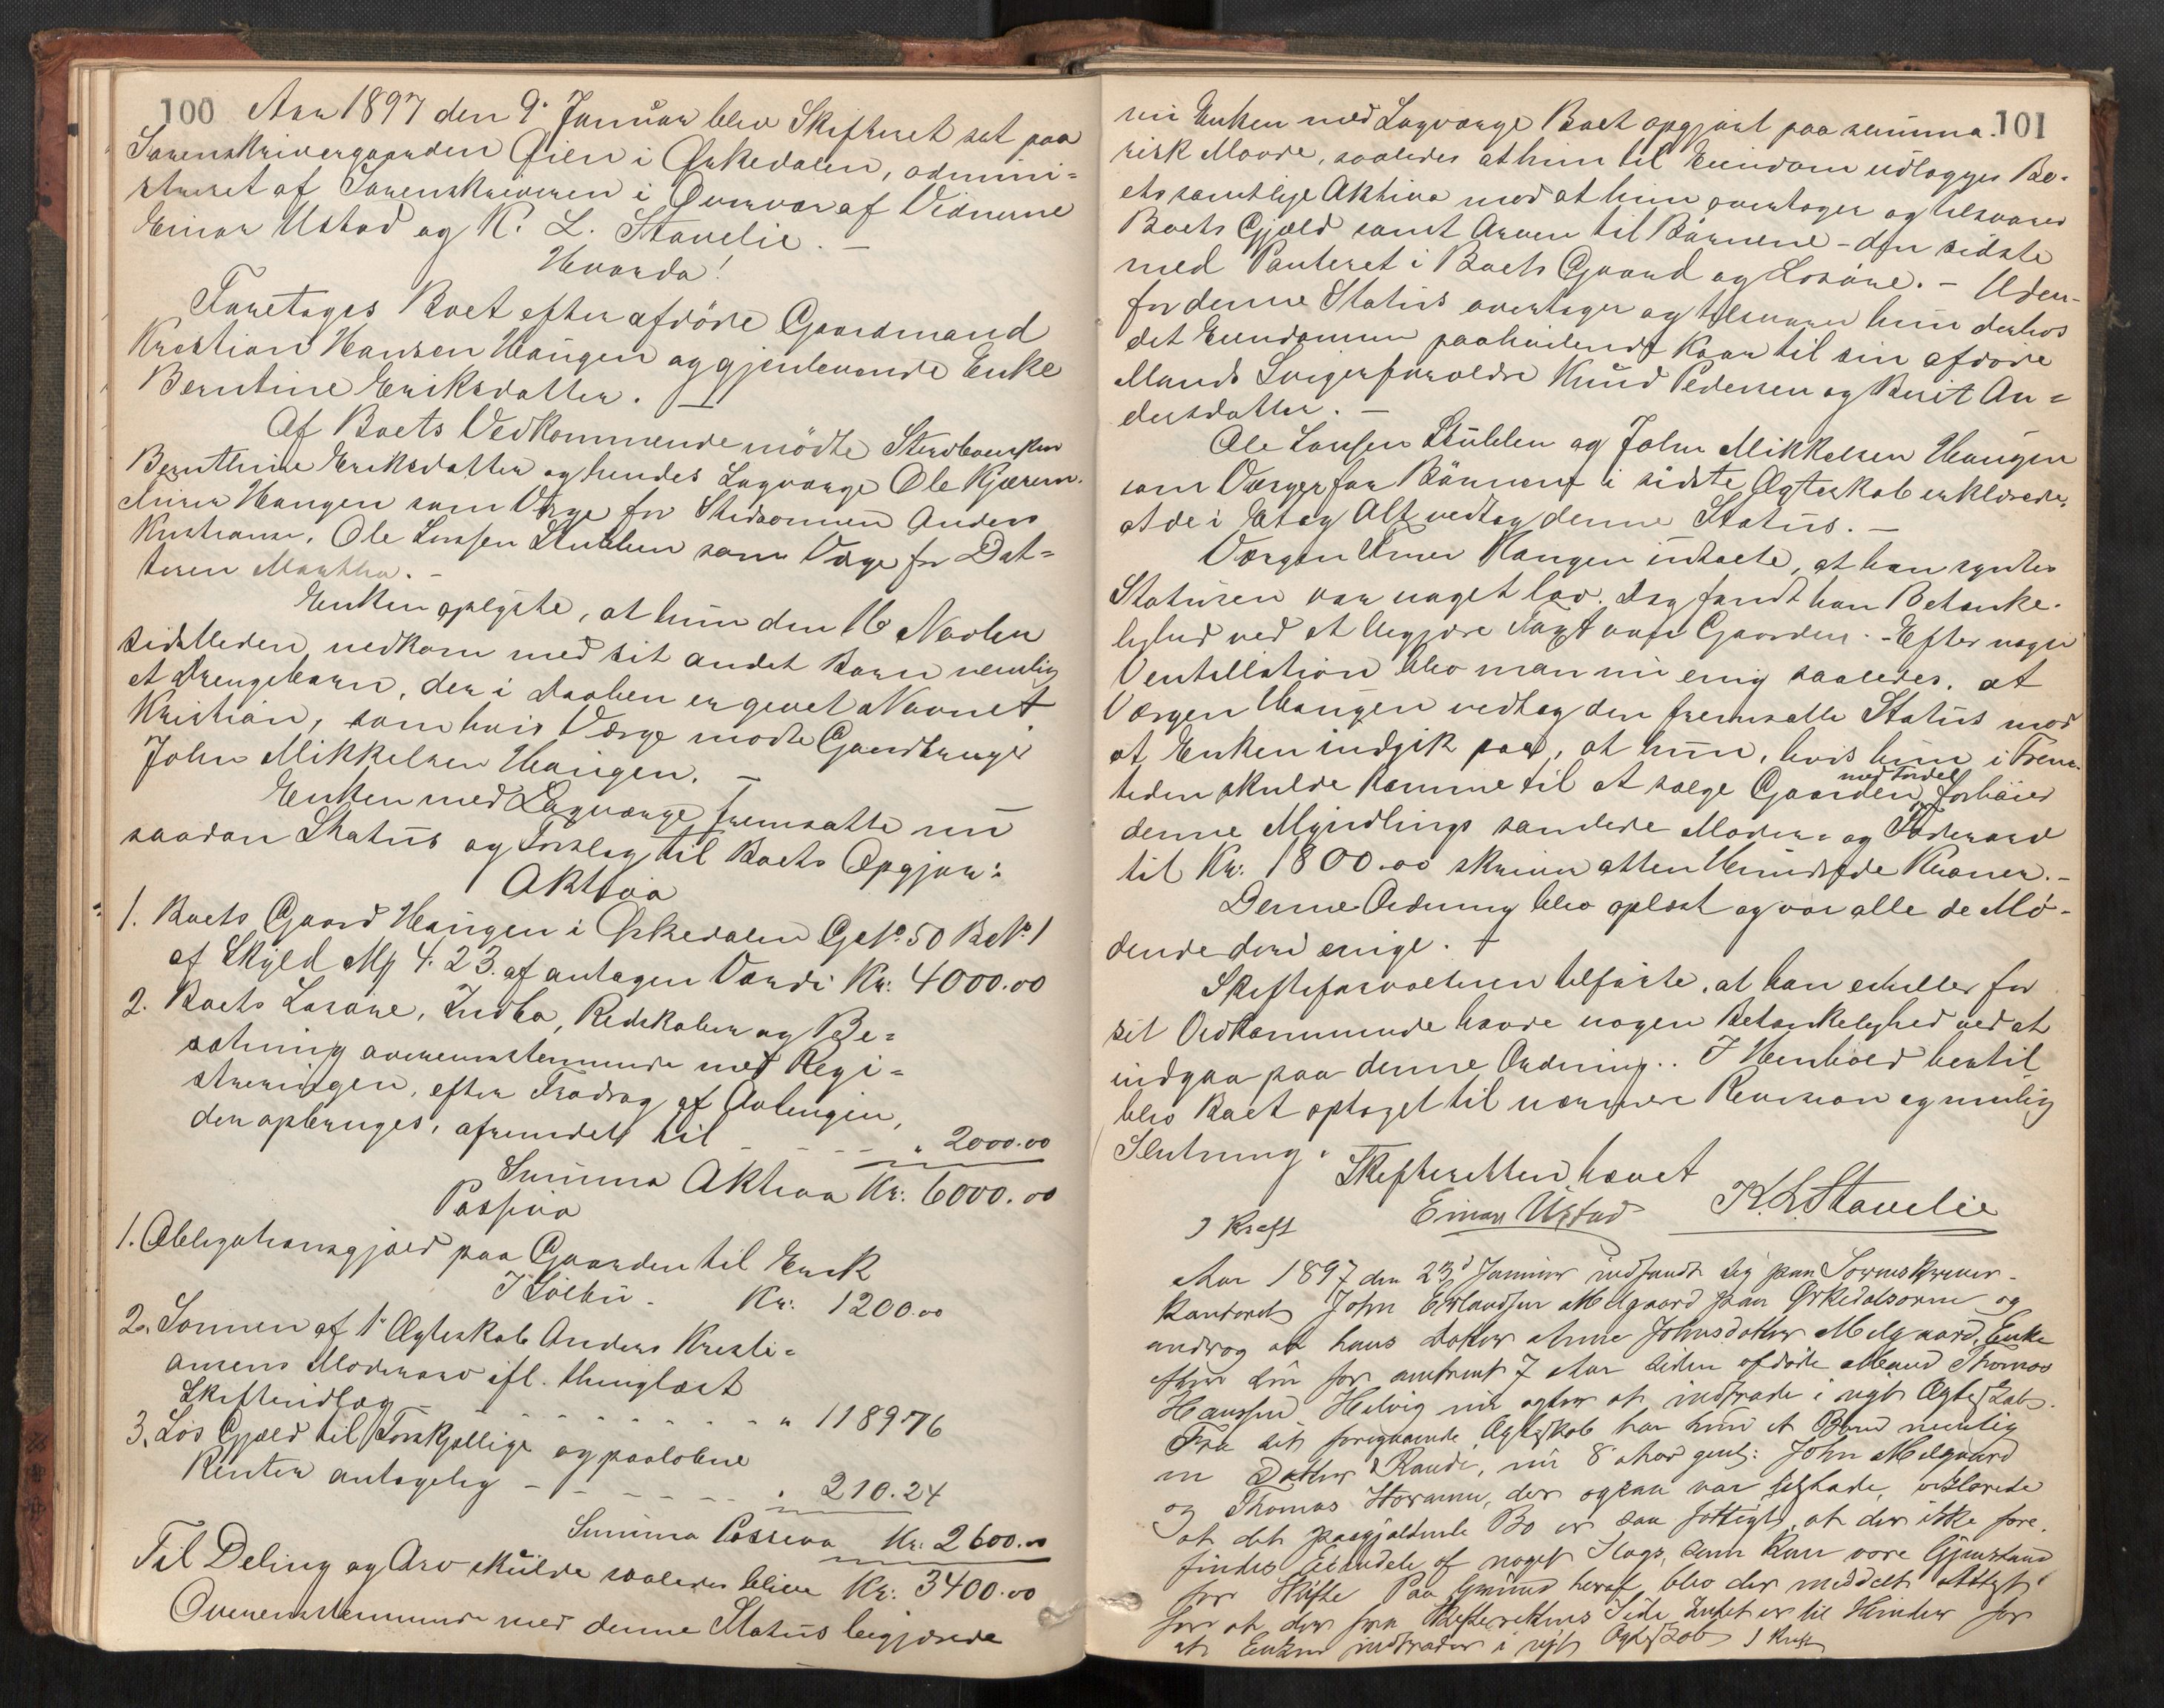 100 Aar 1897 den 9' Januar blev Skifteret sat paa
Sorenskrivergaarden Øien i Ørkedalen, admini-
streret af Sorenskriveren i Overvær af Vidnerne
Einar Ustad og K. L. Stavelie. —
Hvorda!
Foretages Boet efter afdöde Gaardmand
Kristian Hansen Haugen og gjenlevende Enke
Berntine Eriksdatter. —
Af Boets Vedkommende mödte Sterbboenken
Bernthine Eriksdatter og hendes Lagværge Ole Kjærem.
Haugen som Værge for Stedsönnen Anders
Kristiansen, Ole Larsen Stubben som Værge for Dat-
teren Martha. —
Enken oplyste, at hun den 16 Novbr
sidstleden nedkom med sit andet Barn nemlig
et Drengebarn, der i Daaben er givet Navnet
Kristian, som hvis Værge mödte Gaardbruger
John Mikkelsen Haugen. —
Enken med Lagværge fremsatte nu
saadan Status og Forslag til Boets Opgjør:
Aktiva
1. Boets Gaard Haugen i Ørkedalen GNo. 50 BNo. 1
af Skyld Mk 4.23. af antagen Værdi Kr. 4000.00
2. Boets Lösöre, Indbo, Redskaber og Be-
sætning overensstemmende med Regi-
streringen, efter Fradrag af Avlingen,
der opbruges, afrundet til - - - - " 2000.00
Summa Aktiva Kr. 6000.00
Passiva
1. Obligationsgjæld paa Gaarden til Erik
J Solbu - Kr. 1200.00
2. Sönnen af 1' Ægteskab Anders Kristi-
ansens Modersarv ifl. thinglæst
Skifteudlæg - - - - - - - - " 1189.76
3. Lös Gjæld til Forskjellige og paalöbne
Renter antagelig - - - - - - - " 210.24
Summa Passiva Kr. 2600.00
Til Deling og Arv skulde saaledes blive Kr. 3400.00
Overensstemmende med denne Status begjærede
101
nu Enken med Lagværge Boet opgjort paa summa-
risk Maade, saaledes at hun til Eiendom udlægges Bo-
ets samtlige Aktiva mod at hun overtager og tilsvarer
Boets Gjæld samt Arven til Börnene - den sidste
med Panteret i Boets Gaard og Lösöre. - Uden-
for denne Status overtager og tilsvarer hun derhos
det Eiendommen paahvilende Kaar til sin afdöde
Mands Svigerforældre Knud Pedersen og Berit An-
dersdatter. —
Ole Larsen Stubben og John Mikkelsen Haugen
som Værger for Börnene i sidste Ægteskab erklærede,
at de i Et og Alt vedtog denne Status. —
Værgen Haugen udtalte, at han syntes
Statusen var noget lav. Dog fandt han Betænke-
lighed ved at begjære Taxt over Gaarden. - Efter nogen
Ventillation blev man nu enig saaledes, at
Værgen Haugen vedtog den fremsatte Status mod
at Enken indgik paa, at hun, hvis hun i Frem-
tiden skulde komme til at sælge Gaarden med Fordel, forhöier
denne Myndlings samlede Moders- og Fædrearv
til Kr. 1800.00 skriver atten Hundrede Kroner. -
Denne Ordning blev oplæst og var alle de Mö-
dende deri enige. —
Skifteforvalteren tilförte, at han eiheller for
sit Vedkommende havde nogen Betænkelighed ved at
indgaa paa denne Ordning.. I Henhold hertil
blev Boet optaget til nærmere Revision og mulig
Slutning.
Skifteretten hævet
J Kraft Einar Ustad K. L. Stavelie
Aar 1897 den 23d Januar indfandt sig paa Sorenskriver-
kontoret John Erlandsen Melgaard paa Ørkedalsøren og
androg at hans Datter Anne Johnsdatter Melgaard, Enke
efter sin for omtrent 7 Aar siden afdöde Mand Thomas
Hanssen Helvig nu agter at indtræde i nyt Ægteskab.
Fra sit foregaaende Ægteskab har hun et Barn nemlig
en Datter Randi, nu 8 Aar gml: John Melgaard
og Thomas, der ogsaa var tilstede, erklærede
at det paagjældende Bo er saa fattigt, at der ikke fore-
findes Eiendele af noget Slags, som kan være Gjenstand
for Skifte. Paa Grund heraf blev der meddelt Attest
for at der fra Skifterettens Side Intet er til Hinder for
at Enken indtræder i nyt Ægteskab J Kraft